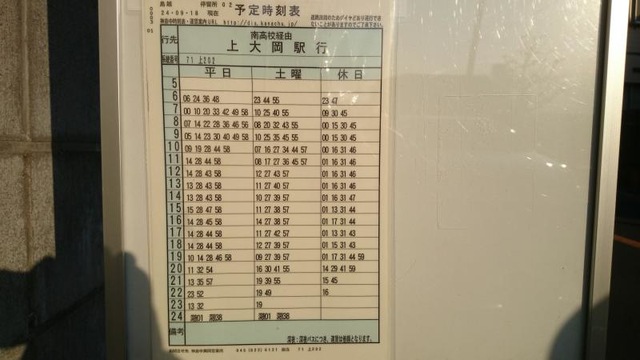 予定時刻表
24-09-18 現在
行先 南高校経由
上大岡駅行
系統番号 71 上202
平日 土曜 休日
5
6 06 24 36 48 23 44 55 23 47
7 00 10 20 33 42 49 58 10 25 40 55 09 30 45
8 07 14 22 28 36 46 56 08 20 32 43 55 00 15 30 45
9 05 14 23 30 40 49 58 10 25 35 45 55 00 15 30 45
10 09 19 28 44 58 07 16 27 34 44 57 00 16 31 46
11 14 28 44 58 08 17 27 36 45 57 01 16 31 46
12 14 28 43 58 12 27 43 57 01 16 31 46
13 14 28 43 58 11 27 40 57 01 16 31 46
14 13 28 43 58 10 27 39 57 01 16 31 47
15 15 28 47 58 10 27 38 57 01 13 31 44
16 14 28 45 58 14 27 38 57 01 17 31 44
17 14 28 44 58 11 27 42 57 01 13 31 43
18 14 28 44 58 12 27 39 57 01 15 31 43
19 10 14 28 46 58 09 27 39 57 01 17 31 44 59
20 11 32 54 16 30 41 55 14 29 41 59
21 13 35 57 19 39 55 15 45
22 23 52 19 49 16
23 13 32 19
24 深01 深38 深01 深38
備考 深夜:深夜バスにつき、運賃は倍額となります。